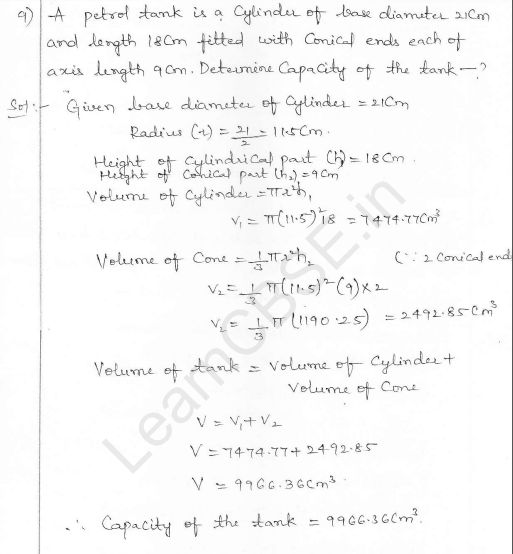 9) A petrol tank is a Cylinder of base diameter 21Cm
and length 18Cm fitted with Conical ends each of
axis length 9Cm. Determine Capacity of the tank -?
Sol:- Given base diameter of Cylinder = 21Cm
Radius (r) = 21/2 = 11.5Cm.
Height of Cylindrical part (h₁) = 18Cm.
Height of Conical part (h₂) = 9Cm
Volume of Cylinder = πr²h₁
V₁ = π(11.5)²18 = 7474.77Cm³
Volume of Cone = 1/3 πr²h₂ (∵ 2 Conical end
V₂ = 1/3 π(11.5)²(9)×2
V₂ = 1/3 π(1190.25) = 2492.85Cm³
Volume of tank = Volume of Cylinder +
Volume of Cone
V = V₁ + V₂
V = 7474.77 + 2492.85
V = 9966.36Cm³
∴ Capacity of the tank = 9966.36Cm³.
LearnCBSE.in